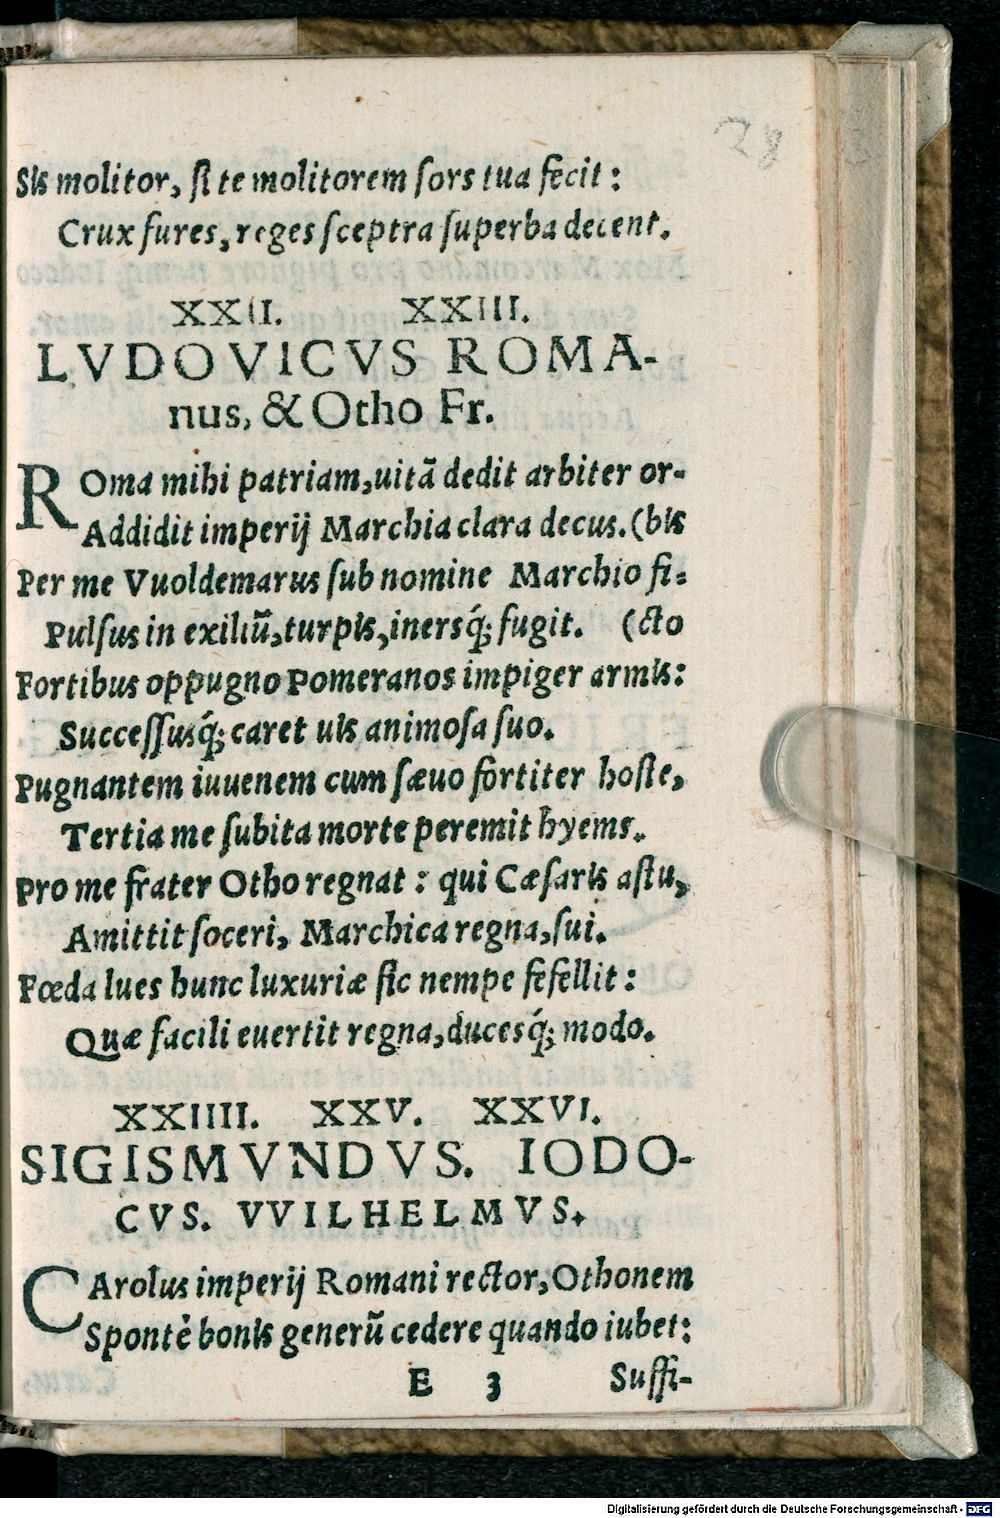 28
Sis molitor, ſi te molitorem ſors tua fecit:
Crux fures, reges ſceptra ſuperba decent.
XXII. XXIII.
LVDOVICVS ROMA-
nus, & Otho Fr.
ROma mihi patriam, uitā dedit arbiter or-
Addidit imperij Marchia clara decus. (bis
Per me Vuoldemarus ſub nomine Marchio fi-
Pulſus in exiliū, turpis, inersq́; fugit. (cto
Fortibus oppugno Pomeranos impiger armis:
Succeſſusq́; caret uis animoſa ſuo.
Pugnantem iuuenem cum ſæuo fortiter hoſte,
Tertia me ſubita morte peremit hyems.
Pro me frater Otho regnat: qui Cæſaris aſtu,
Amittit ſoceri, Marchica regna, ſui.
Fœda lues hunc luxuriæ ſic nempe fefellit:
Quæ facili euertit regna, ducesq́; modo.
XXIIII. XXV. XXVI.
SIGISMVNDVS. IODO-
CVS. VVILHELMVS.
CArolus imperij Romani rector, Othonem
Spontè bonis generū cedere quando iubet:
E 3 Suffi-
Digitalisierung gefördert durch die Deutsche Forschungsgemeinschaft - DFG